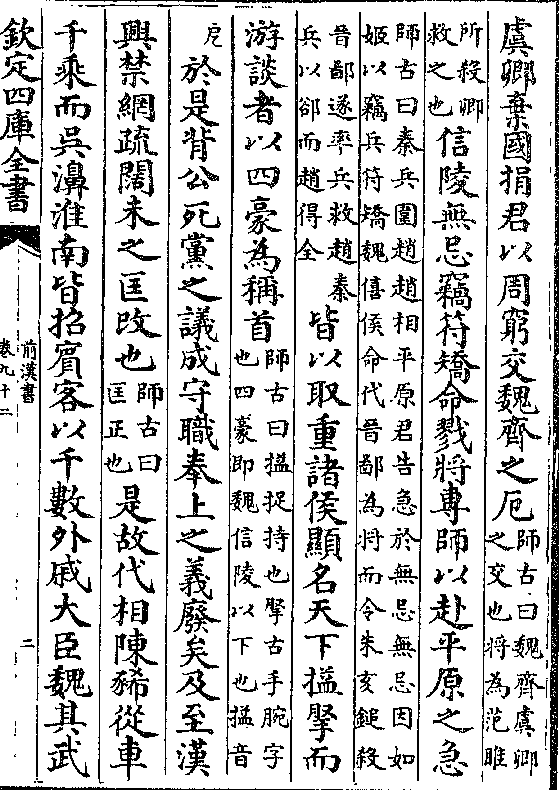 虞卿棄國捐君以周窮交魏齊之厄師古曰魏齊虞卿之交也將為范雎
所殺卿救之也信陵無忌竊符矯命戮將專師以赴平原之急
師古曰秦兵圍趙趙相平原君告急於無忌無忌因如姬以竊兵符矯魏僖侯命代晉鄙為將而令朱亥鎚殺
晉鄙遂率兵救趙秦兵以卻而趙得全皆以取重諸侯顯名天下搤掔而
游談者以四豪為稱首師古曰搤捉持也掔古手腕字也四豪即魏信陵以下也搤音
戹於是背公死黨之議成守職奉上之義廢矣及至漢
興禁網疏闊未之匡改也師古曰匡正也是故代相陳豨從車
千乘而吳濞淮南皆招賓客以千數外戚大臣魏其武
欽定四庫全書
前漢書
卷九十二
二